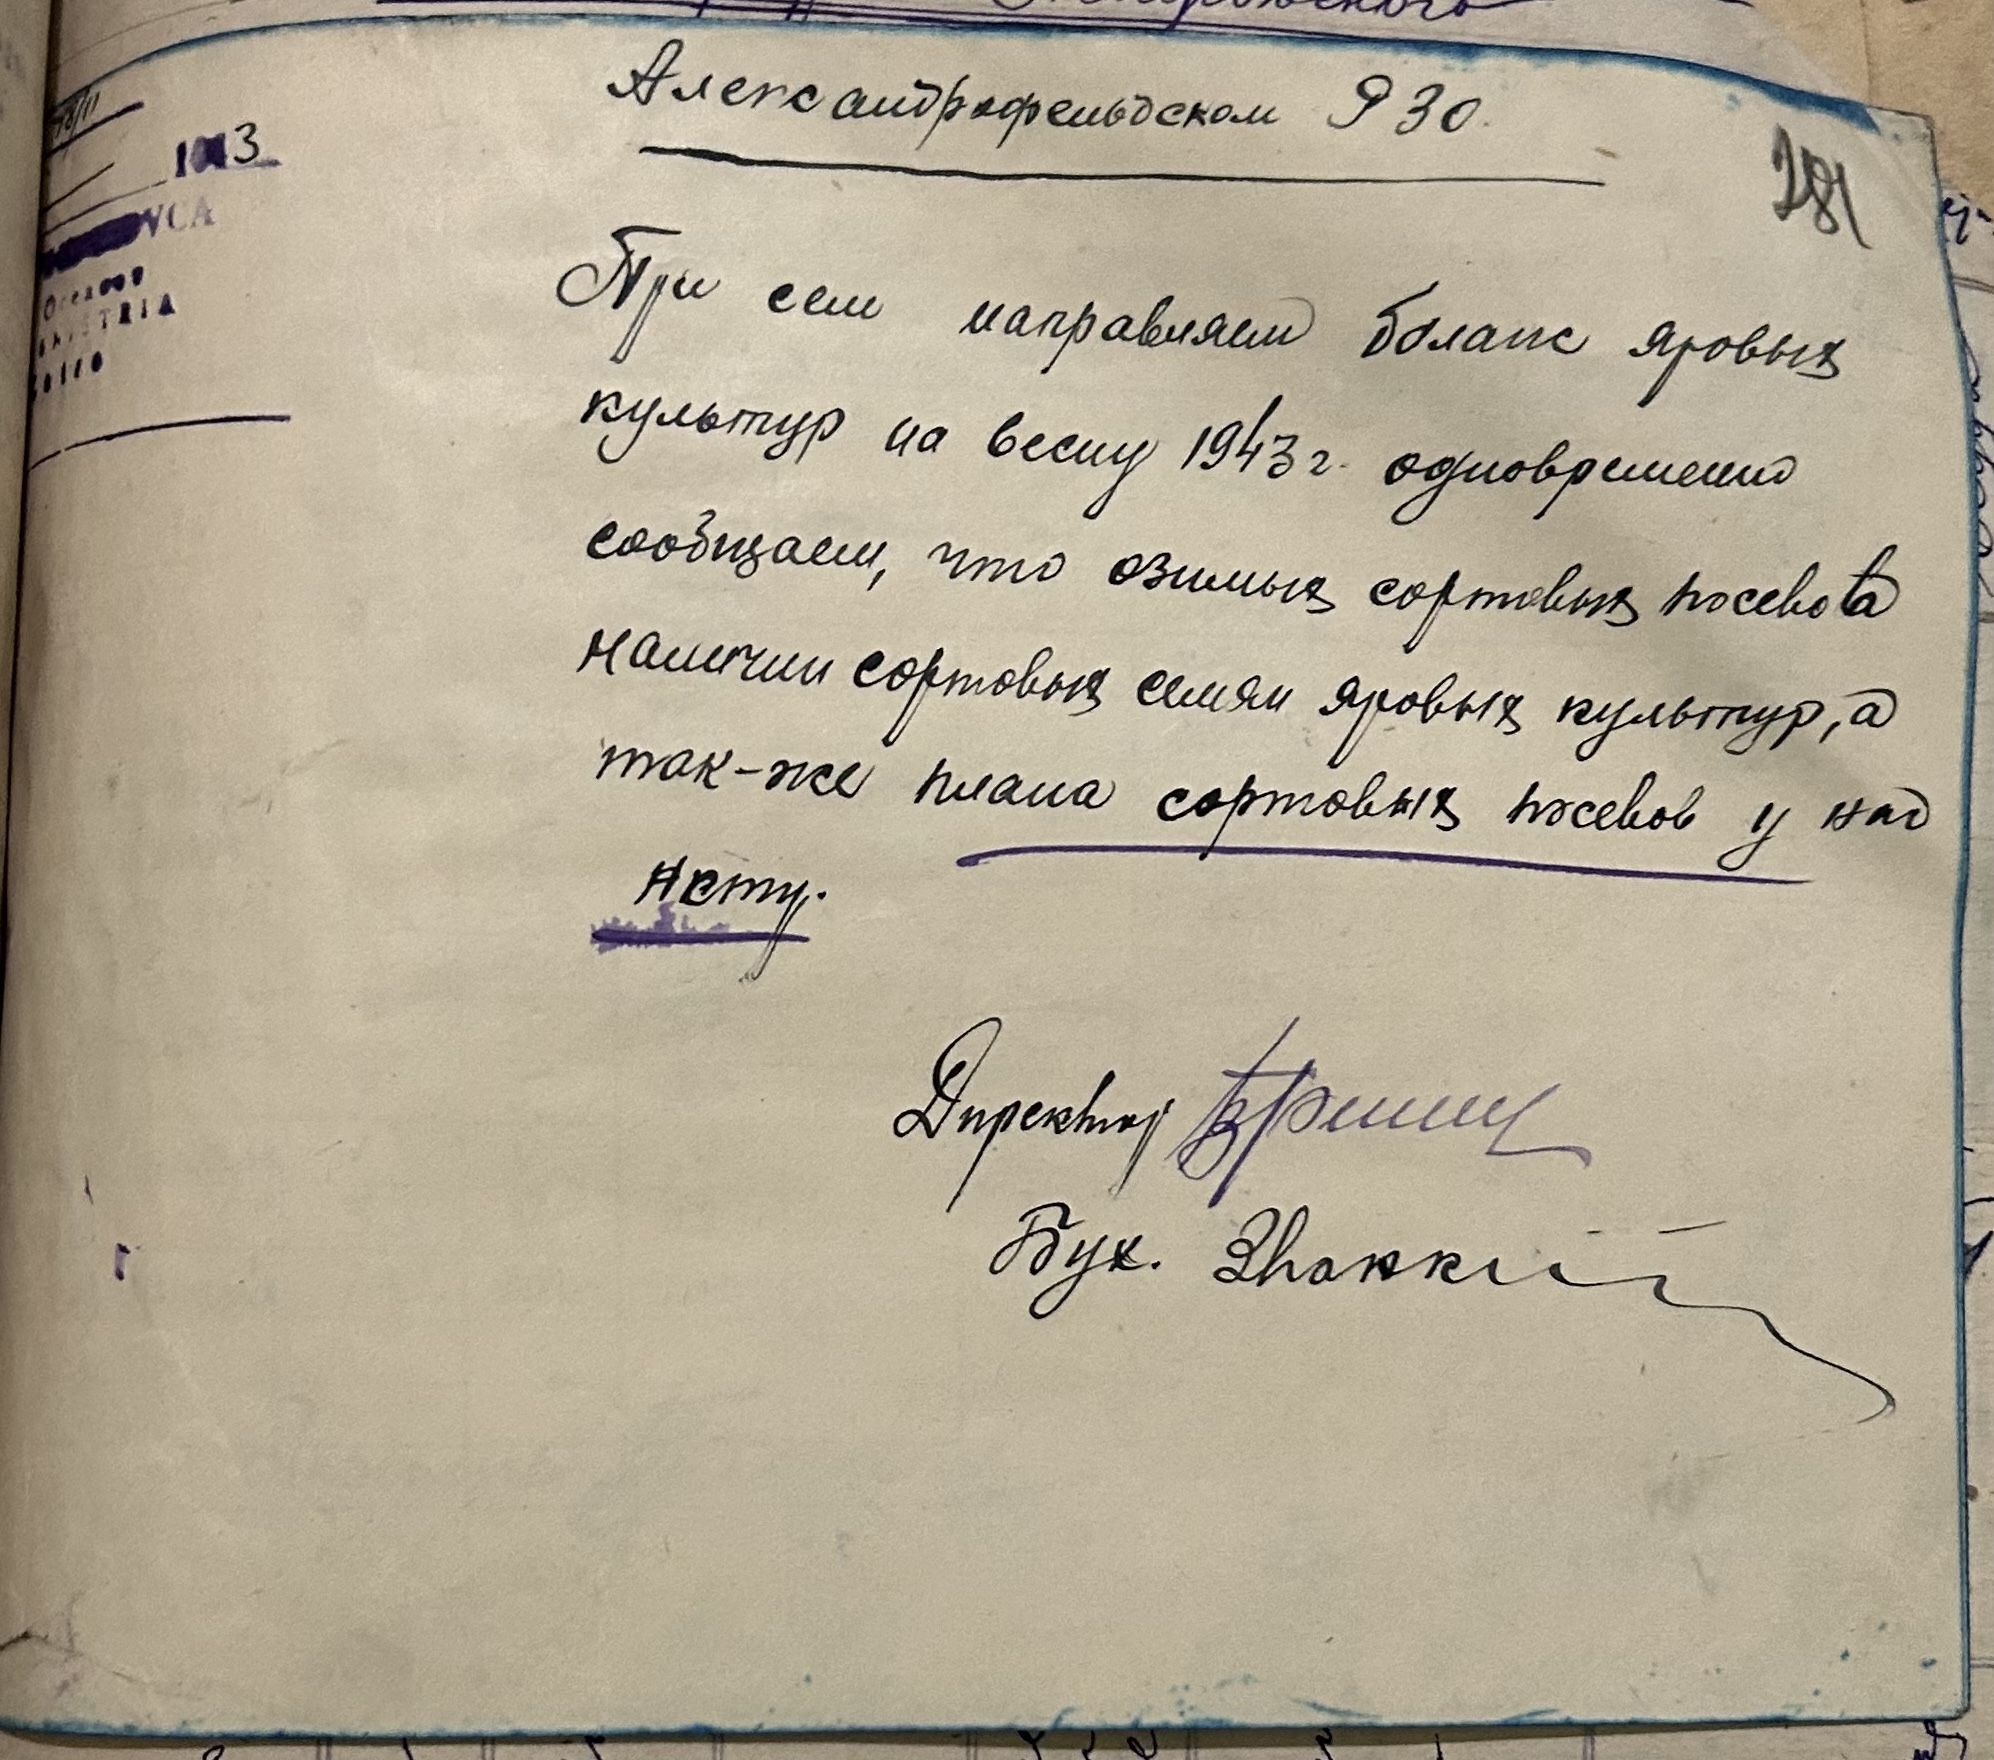 Александрофельдском РЗО.
281
1943
При сем направляем баланс яровых
культур на весну 1943 г. одновременно
сообщаем, что озимых сортовых посевов
наличии сортовых семян яровых культур, а
так-же плана сортовых посевов у нас
нету.
Директор
Бух.